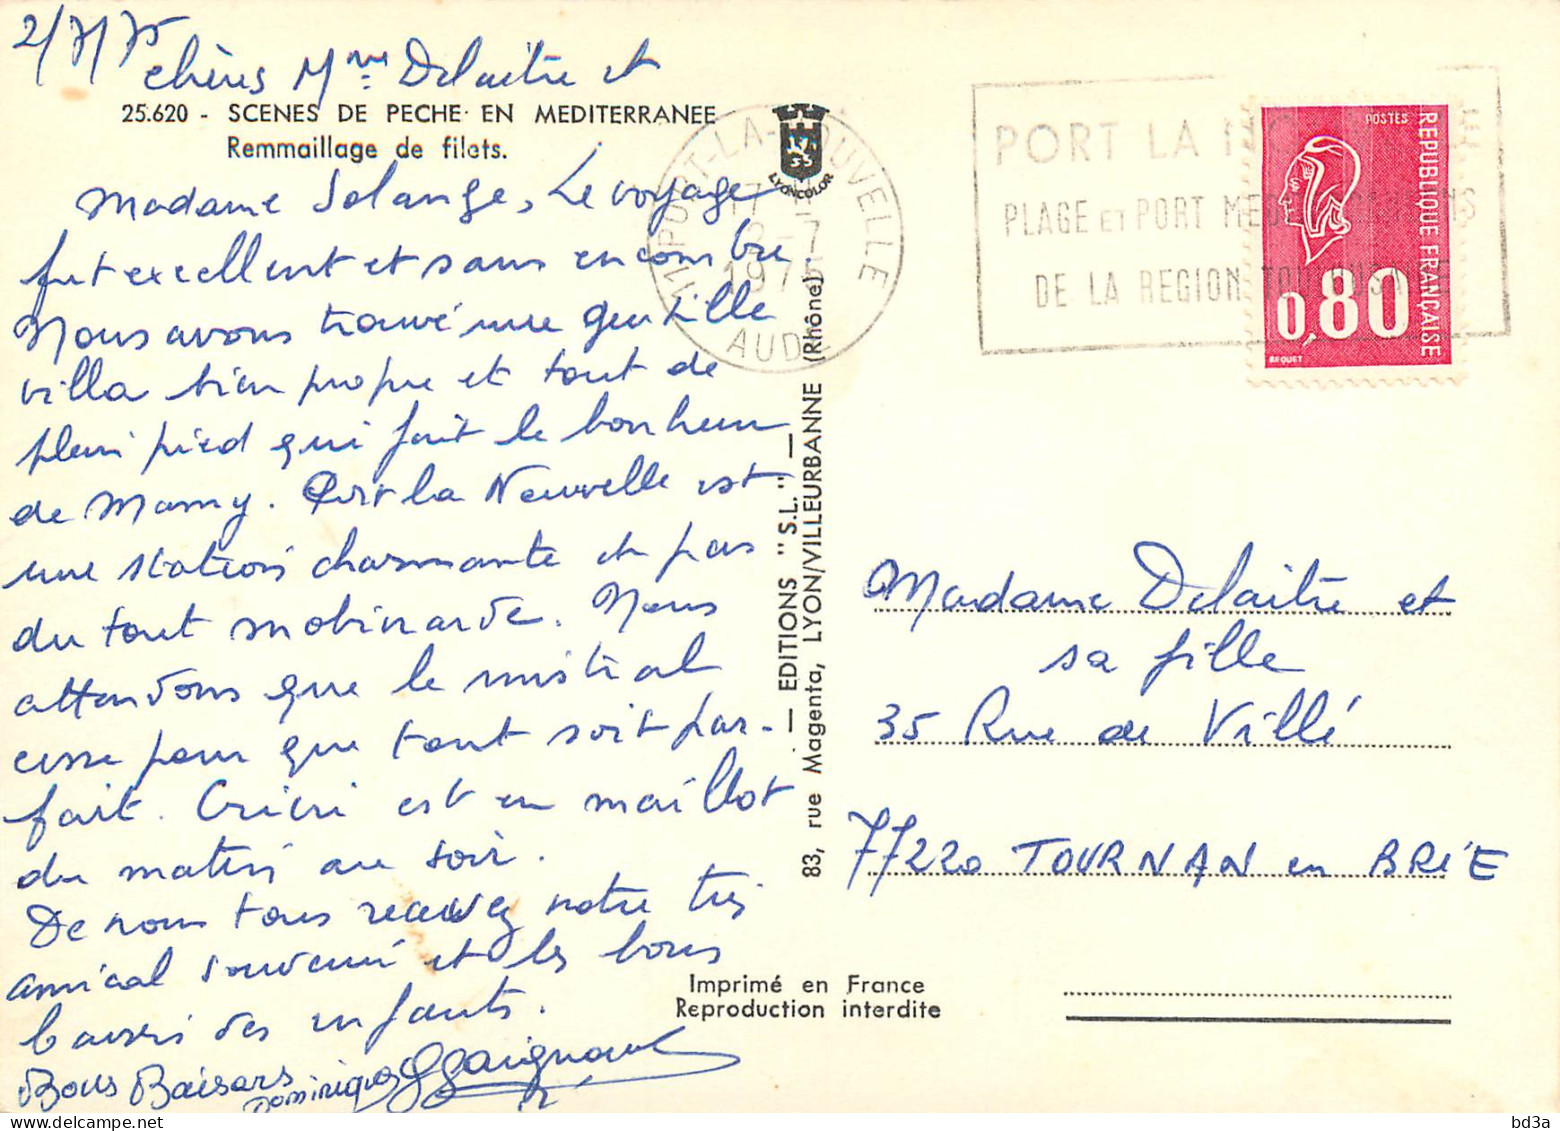 2/7/75
chères Mme Delaitre et
25.620 - SCENES DE PECHE EN MEDITERRANEE
Remmaillage de filets.
Madame Solange, Le voyage
fut excellent et sans encombre.
Nous avons trouvé une gentille
villa bien propre et tout de
plein pied qui fait le bonheur
de Mamy. Port la Nouvelle est
une station charmante et pas
du tout snobinarde. Nous
attendons que le mistral
cesse pour que tout soit par-
fait. Cricri est en maillot
du matin au soir.
De nous tous recevez notre très
amical souvenir et les bons
baisers des enfants.
Bons Baisers
Dominique
LYONCOLOR
11 PORT-LA-NOUVELLE
17 H
2 - 7
1975
AUDE
PORT LA NOUVELLE
PLAGE ET PORT MEDITERRANEENS
DE LA REGION TOULOUSAINE
POSTES
REPUBLIQUE FRANÇAISE
0,80
BEQUET
— EDITIONS "S.L." —
83, rue Magenta, LYON/VILLEURBANNE (Rhône)
Madame Delaitre et
sa fille
35 Rue de Villé
77220 TOURNAN en BRIE
Imprimé en France
Reproduction interdite
bd3a